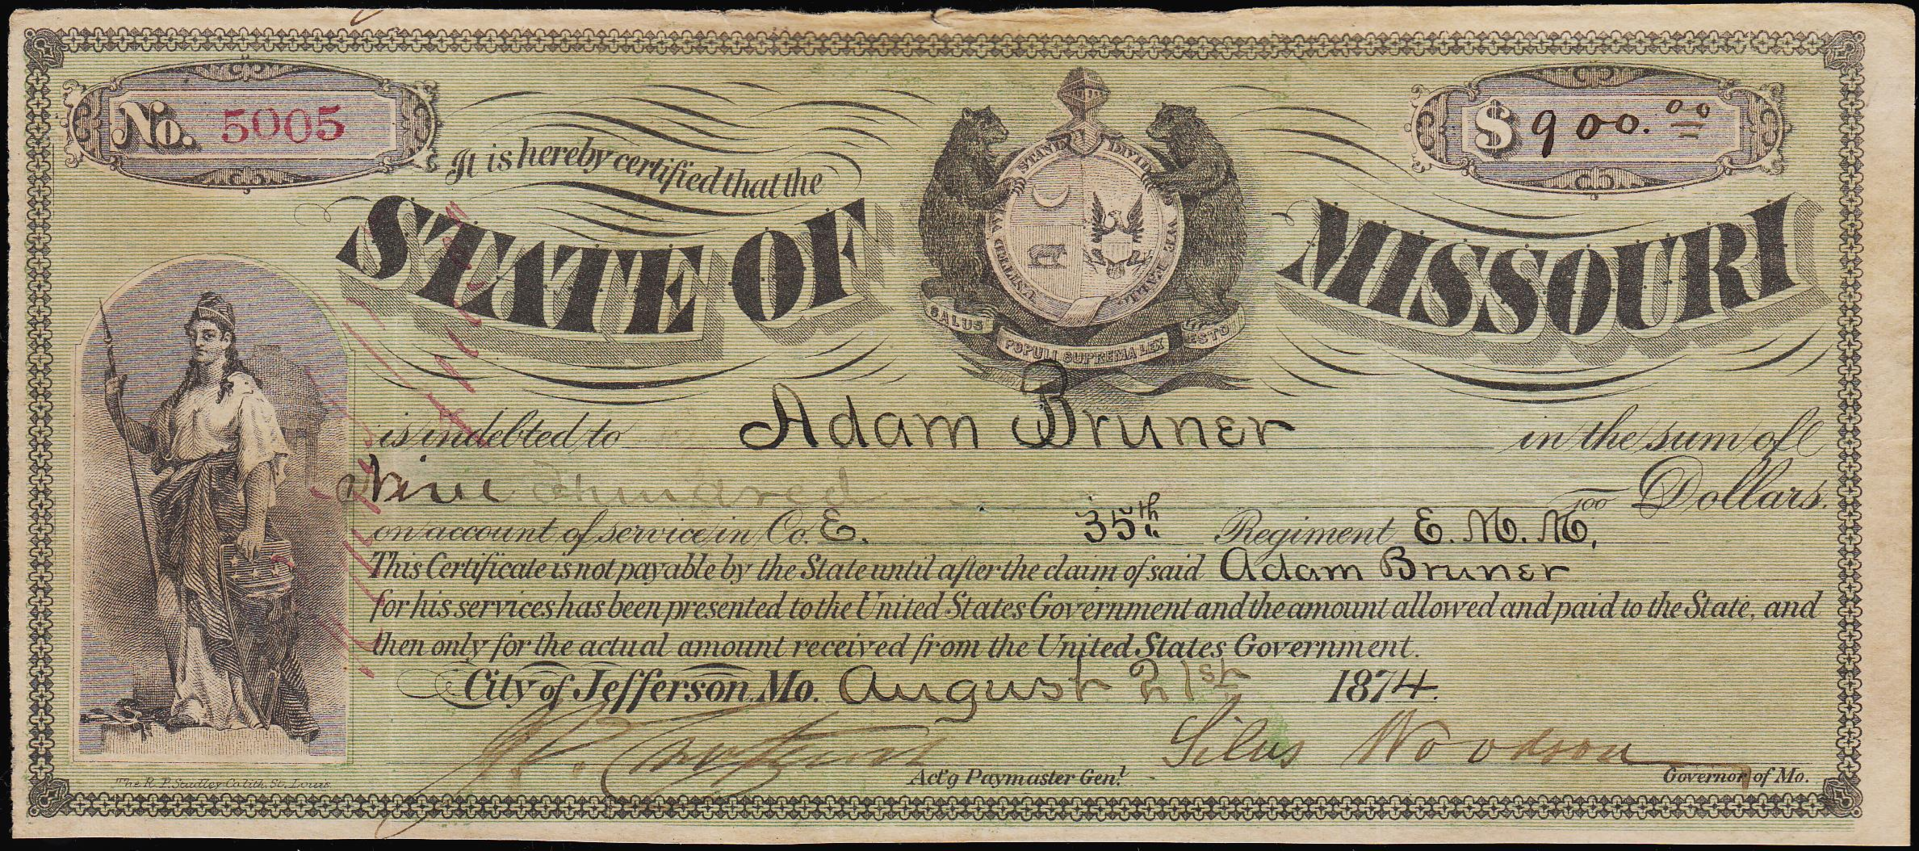 No. 5005
$ 900.00
It is hereby certified that the
STATE OF MISSOURI
UNITED WE STAND DIVIDED WE FALL
SALUS POPULI SUPREMA LEX ESTO
is indebted to Adam Bruner in the sum of
Nine Hundred /100 Dollars.
on account of service in Co. E. 35th Regiment E. M. M.
This Certificate is not payable by the State until after the claim of said Adam Bruner
for his services has been presented to the United States Government and the amount allowed and paid to the State, and
then only for the actual amount received from the United States Government.
City of Jefferson, Mo. August 21st 1874.
Act'g Paymaster Genl.
Silas Woodson
Governor of Mo.
The R. P. Studley Co. lith. St. Louis